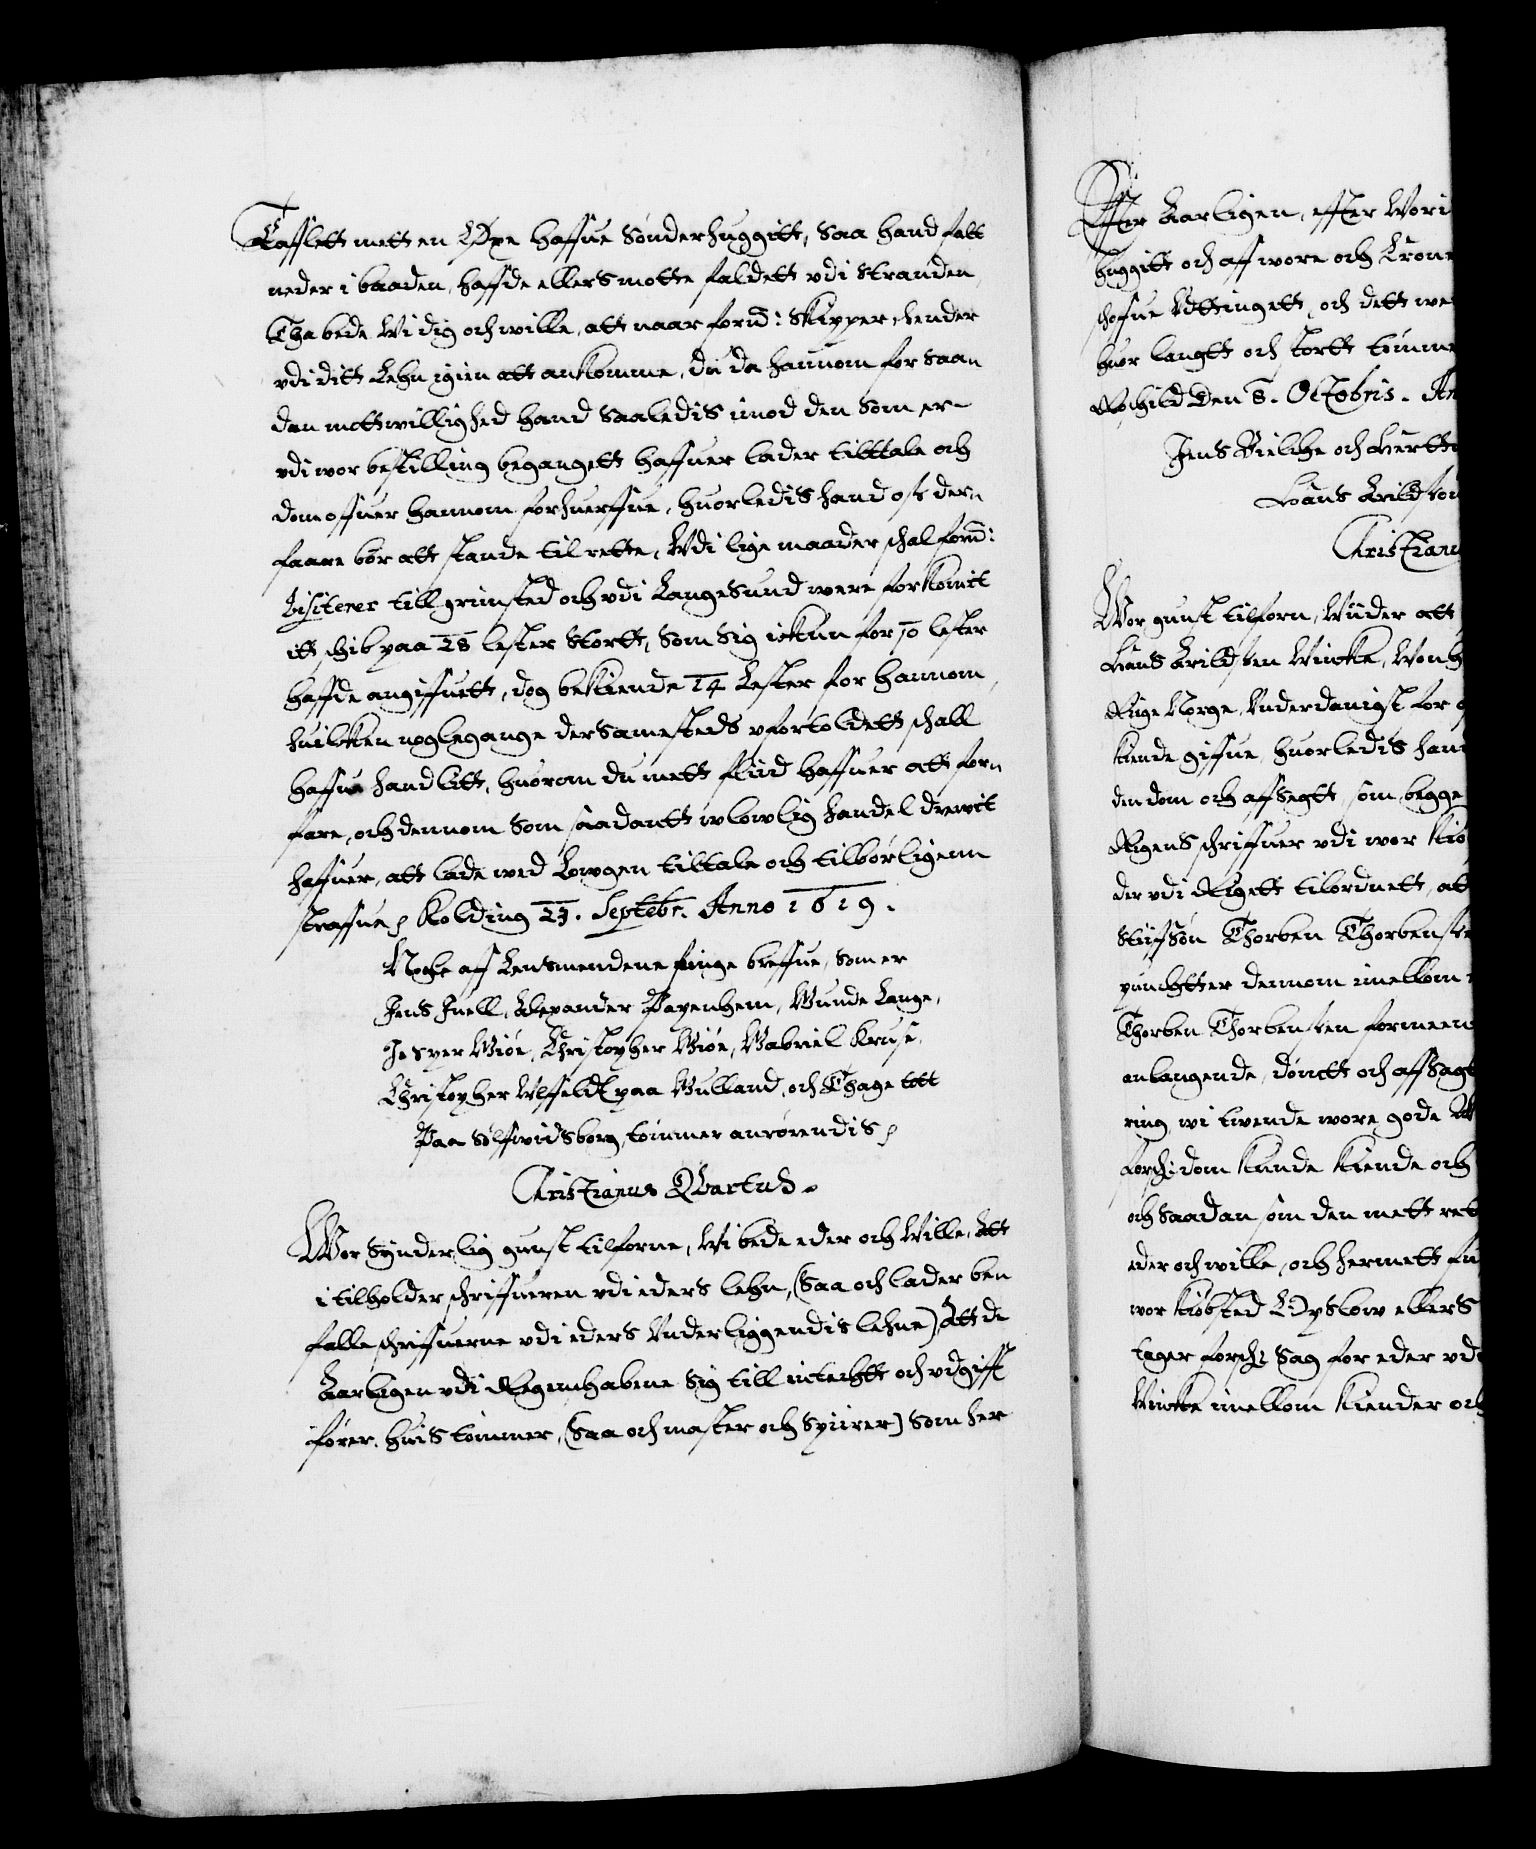 Tafflett mett en Øxe haffue sønderhuggitt, saa hand falt
neder i baaden, haffde ellers motte faldett vdi stranden,
Tha bede Wi dig och wille, att naar fornd: Skipper hender
vdi ditt Lehn igien att ankomme, du da hannom for saan
dan mottwillighed hand saaledis imod den som er
vdi wor bestilling begangett haffuer lader tilltale och
dom offuer hannom forhuerffue, huorledis hand
faare bør att stande til rette, Wdi lige maader schal fornd:
Visiterer till grimsted och vdi Langesund were forkomit
itt schib paa 28 lester stortt, som sig ickun for 10 lester
haffde angiffuett, dog bekiende 14 Lester for hannom,
huilcken noglegange der samesteds vfortoldett schall
haffue handlitt, huorom du mett fliid haffuer att for
fare, och dennom som saadantt wlowlig handel dreuit
haffuer, att lade wed Lowgen tiltale och tilbørligenn
straffue, Kolding 23. Septebr. Anno 1619.
Nogle aff Lensmendene finge breffue, som er
Jens Juell, Alexander Papenhem, Gunde Lange,
Jesper Giøe, Christopher Giøe, Gabriel Kruse,
Christopher Wlffeldt paa Gulland, och Thage tott
Paa Sølffuidsborg, tømmer anrørendis
Christianus Quartus
Wor synderlig gunst tilforne, Wi bede eder och Wille, Att
i tilholder schriffueren vdi eders lehn, (Saa och lader ben
falle schriffuerne vdi eders Vnderliggendis lehne) Att de
Aarligen vdi Regenschabene sig till intechtt och vdgifft
fører, huis tømmer, (Saa och master och Spiirer) som her
Effter Aarligen, effter Wori
huggitt och aff wore och Crone
hoffue Vdttingett, och dett we
huor langtt och stortt tømme
Roschild den 8. Octobris. An
Jens Bielche och
Hans
Christianu
Wor gunst tilforn, Wiider att
Hans Vincke, Won
Rige Norge, Vnderdanigst for
kiende giffue, huorledis han
den dom och affsegtt, som begge
Rigens schriffuer vdi wor Kiø
der vdi Rigett tilordnett, att
Stifsøn Thorben Thorbens
punchtter dennom imellom
Thorben Thorbensen formeen
anlangende, dømtt och affsagt
ring wi twende wore gode M
forsch: dom kunde kiende och
och saadan som den mett ret
eder och wille, och hermett fu
wor kiøbsted Opslow ellers
tager forsch: sag for eder vdi
Vincke imellom kiender och